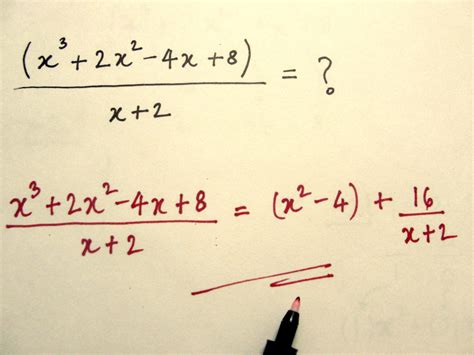 (x³+2x²-4x+8)/x+2 = ?
x³+2x²-4x+8/x+2 = (x²-4) + 16/x+2